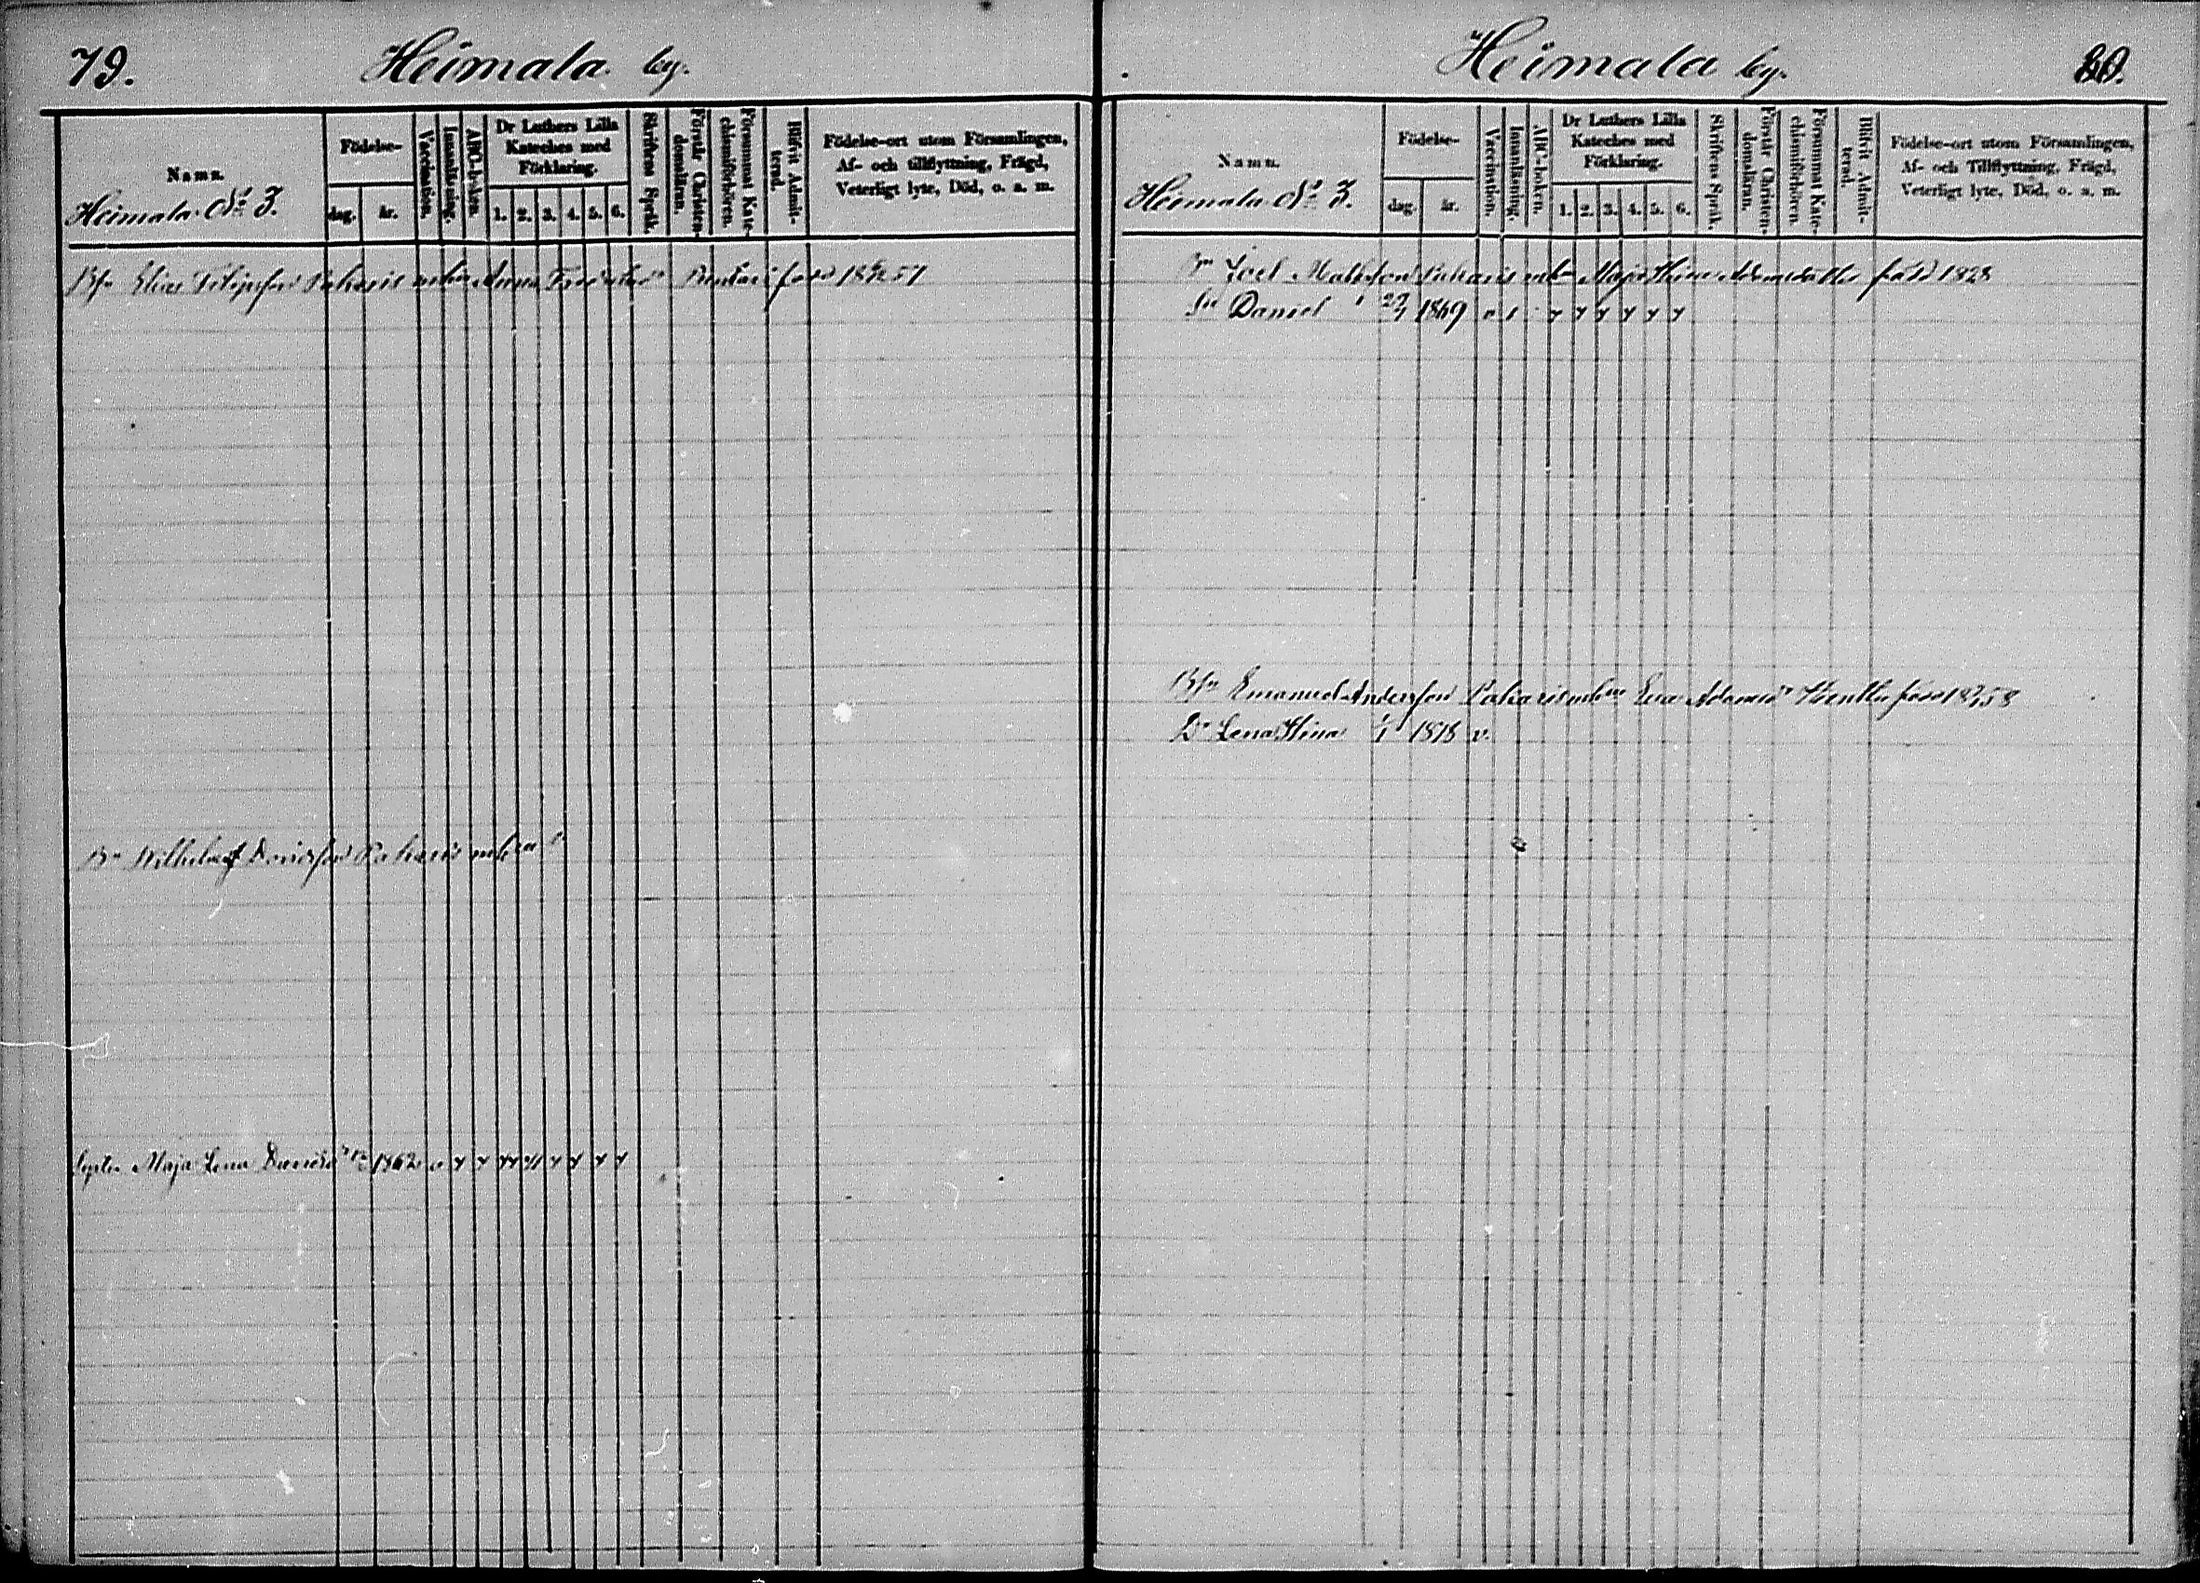 79.
Heimala by.
Namn.
Heimala No 3.
Födelse-
dag.
år.
Vaccination.
Innanläsning.
ABC-boken.
Dr Luthers Lilla
Kateches med
Förklaring.
1. 2. 3. 4. 5. 6.
Skriftens Språk.
Förstår Christen-
domsläran.
Försummat Kate-
chismiförhören.
Blifvit Admit-
terad.
Födelse-ort utom Församlingen,
Af- och tillflyttning, Frägd,
Veterligt lyte, Död, o. a. m.
Elias Filipsson Paharis Anna
Wilhelm Davidsson Paharis
Maja Lena 1862
Heimala by.
80.
Namn.
Heimala No 3.
Födelse-
dag.
år.
Vaccination.
Innanläsning.
ABC-boken.
Dr Luthers Lilla
Kateches med
Förklaring.
1. 2. 3. 4. 5. 6.
Skriftens Språk.
Förstår Christen-
domsläran.
Försummat Kate-
chismiförhören.
Blifvit Admit-
terad.
Födelse-ort utom Församlingen,
Af- och Tillflyttning, Frägd,
Veterligt lyte, Död, o. a. m.
Joel Mattsson Paharis Maja Stina
Daniel 27/1 1869
Emanuel Andersson Paharis Eva
Lena Stina 1/1 1878 v.